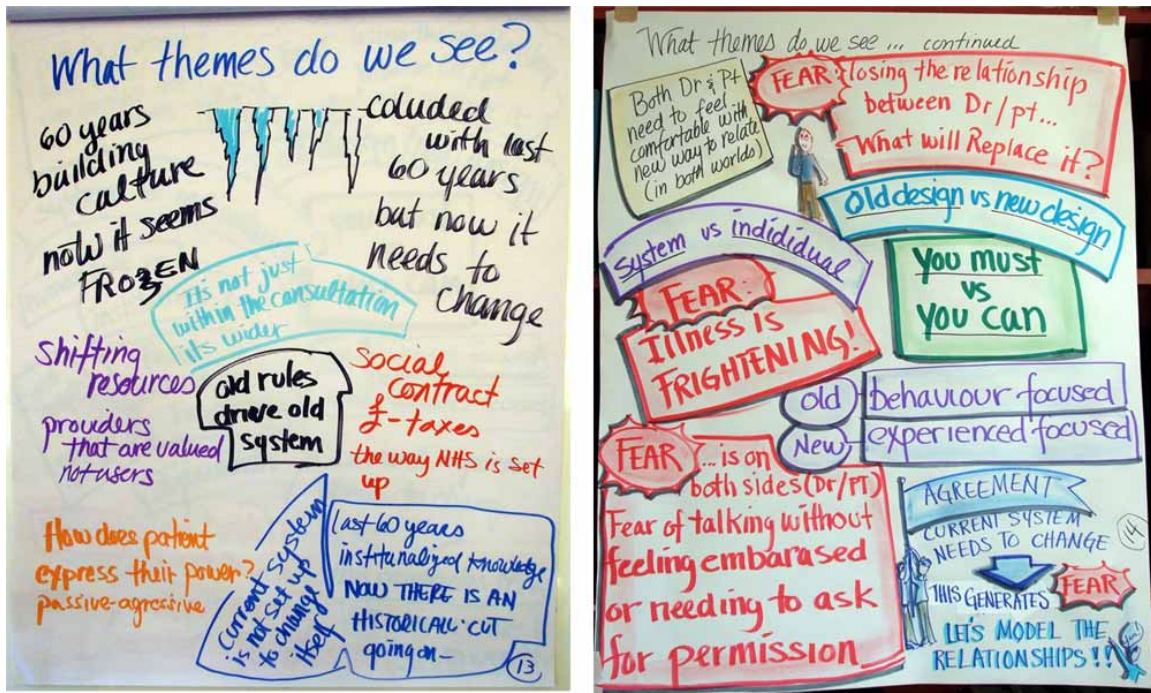 What themes do we see?
60 years
building
culture
now it seems
FROZEN
coluded
with last
60 years
but now it
needs to
change
it's not just
within the consultation
its wider
shifting
resources
providers
that are valued
not users
old rules
drive old
system
social
contract
£-taxes
the way NHS is set
up
How does patient
express their power?
passive-agressive
current system
is not set up
to change
itself
Last 60 years
institunalized knowledge
NOW THERE IS AN
HISTORICALL CUT
going on-
13
What themes do we see... continued
Both Dr & Pt
need to feel
comfortable with
new way to relate
(in both worlds)
FEAR: losing the relationship
between Dr/pt...
What will Replace it?
Old design vs new design
system vs indididual
You must
vs
you can
FEAR:
Illness is
FRIGHTENING!
old behaviour focused
New experienced focused
FEAR ...is on
both sides (Dr/PT)
Fear of talking without
feeling embarased
or needing to ask
for permission
AGREEMENT
CURRENT SYSTEM
NEEDS TO CHANGE
14
THIS GENERATES FEAR
LET'S MODEL THE
RELATIONSHIPS!!